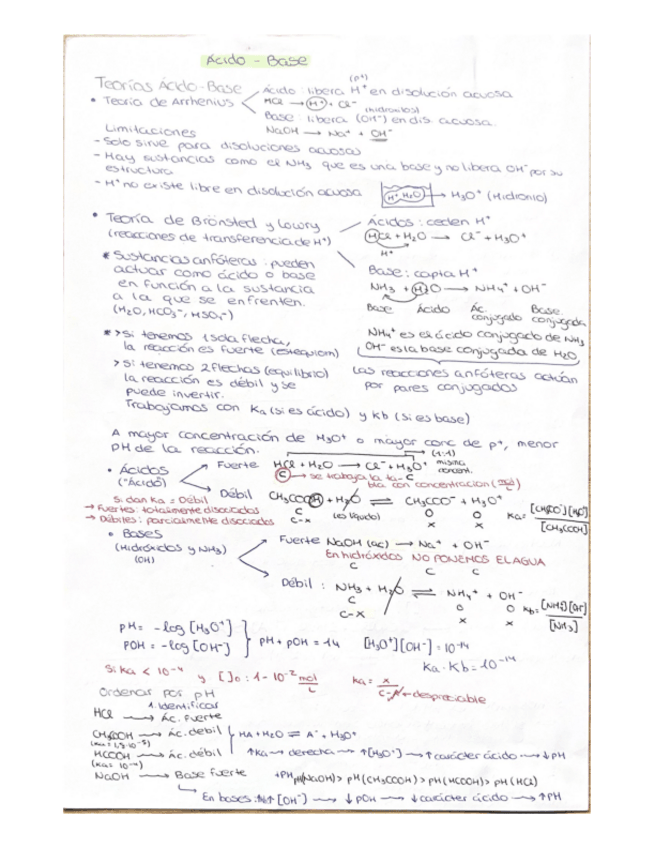 Ácido - Base
Teorías Ácido-Base
(p⁺)
• Teoría de Arrhenius
Ácido: libera H⁺ en disolución acuosa
HCl → H⁺ + Cl⁻
(hidroxilos)
Base: libera (OH⁻) en dis. acuosa.
NaOH → Na⁺ + OH⁻
Limitaciones
- Solo sirve para disoluciones acuosas
- Hay sustancias como el NH₃ que es una base y no libera OH⁻ por su
estructura
- H⁺ no existe libre en disolución acuosa
H⁺ H₂O → H₃O⁺ (Hidronio)
• Teoría de Brönsted y Lowry
(reacciones de transferencia de H⁺)
Ácidos: ceden H⁺
HCl + H₂O → Cl⁻ + H₃O⁺
H⁺
Base: capta H⁺
NH₃ + H₂O → NH₄⁺ + OH⁻
Base Ácido Ác. conjugado Base conjugada
NH₄⁺ es el ácido conjugado de NH₃
OH⁻ es la base conjugada de H₂O
Las reacciones anfóteras actúan
por pares conjugados
* Sustancias anfóteras: pueden
actuar como ácido o base
en función a la sustancia
a la que se enfrenten.
(H₂O, HCO₃⁻, HSO₄⁻)
* > Si tenemos 1 sola flecha,
la reacción es fuerte (estequiom)
> Si tenemos 2 flechas (equilibrio)
la reacción es débil y se
puede invertir.
Trabajamos con Ka (si es ácido) y Kb (si es base)
A mayor concentración de H₃O⁺ o mayor conc de p⁺, menor
PH de la reacción.
• Ácidos
(⁻Ácido)
Fuerte HCl + H₂O → Cl⁻ + H₃O⁺
(1:1)
misma
concent.
C → se trabaja la tabla con concentración (mol/L)
C
Débil CH₃COOH + H₂O ⇌ CH₃COO⁻ + H₃O⁺
C (es líquido) O O
C-x x x
Ka = [CH₃COO⁻][H₃O⁺] / [CH₃COOH]
Si dan Ka = Débil
→ Fuertes: totalmente disociados
→ Débiles: parcialmente disociados
• Bases
(Hidróxidos y NH₃)
(OH)
Fuerte NaOH (ac) → Na⁺ + OH⁻
En hidróxidos NO PONEMOS EL AGUA
C C C
Débil: NH₃ + H₂O ⇌ NH₄⁺ + OH⁻
C O O
C-x x x
Kb = [NH₄⁺][OH⁻] / [NH₃]
pH = -log [H₃O⁺]
POH = -log [OH⁻]
pH + pOH = 14
[H₃O⁺][OH⁻] = 10⁻¹⁴
Ka · Kb = 10⁻¹⁴
Si Ka < 10⁻⁴ y [ ]₀: 1 - 10⁻² mol/L
Ka = x / C-x → despreciable
Ordenar por pH
1. Identificar
HCl → Ác. Fuerte
CH₃COOH → Ác. débil
HCOOH → Ác. débil
NaOH → Base fuerte
HA + H₂O ⇌ A⁻ + H₃O⁺
↑Ka → derecha → ↑[H₃O⁺] → ↑carácter ácido → ↓pH
pH(NaOH) > pH(CH₃COOH) > pH(HCOOH) > pH(HCl)
En bases: ↑[OH⁻] → ↓pOH → ↓carácter ácido → ↑PH